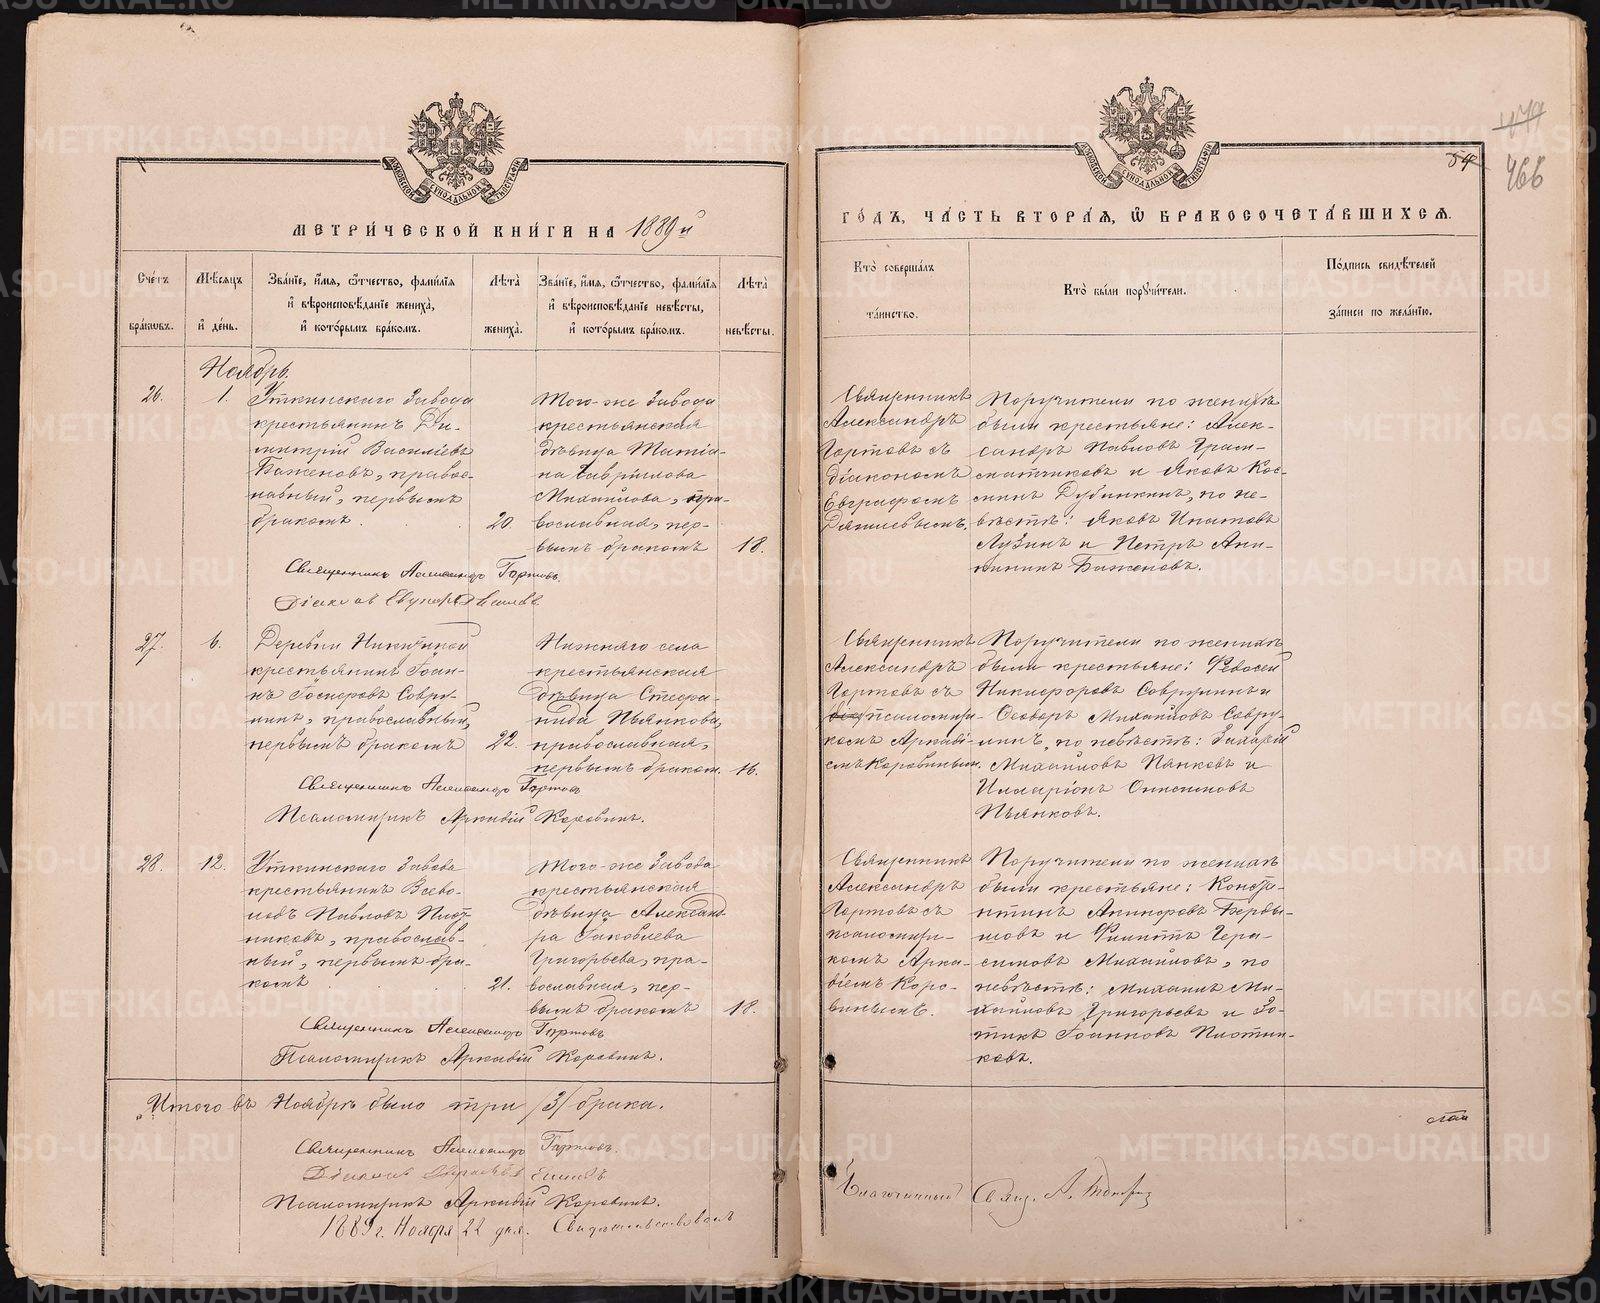 МЕТРИ́ЧЕСКОЙ КНИ́ГИ НА 1889й
Сче́тъ браковъ.
Мѣ́сяцъ и҆ де́нь.
Зва́нїе, и҆́мя, ѻ҆́тчество, фами́лїя и҆ вѣроисповѣ́данїе жениха̀, и҆ кото́рымъ бра́комъ.
Лѣта̀ жениха̀.
Зва́нїе, и҆́мя, ѻ҆́тчество, фами́лїя и҆ вѣроисповѣ́данїе невѣ́сты, и҆ кото́рымъ бра́комъ.
Лѣта̀ невѣ́сты.
Ноябрь.
26.
1.
Уткинскаго Завода
крестьянинъ Ди-
митрій Василіевъ
Баженовъ, правос-
лавный, первымъ
бракомъ.
20.
Того-же Завода
крестьянская
дѣвица Татіа-
на Гавріилова
Михайлова, пра-
вославная, пер-
вымъ бракомъ
18.
Священникъ Александръ Гортовъ.
Діаконъ
27.
6.
Деревни
крестьянинъ Іоан-
нъ Совру-
нинъ, православный,
первымъ бракомъ
22.
Нижняго села
крестьянская
дѣвица Стефа-
нида Пьянкова,
православная,
первымъ бракомъ.
16.
Священникъ Александръ Гортовъ
Псаломщикъ Аркадій Коровинъ.
28.
12.
Уткинскаго Завода
крестьянинъ Всево-
лодъ Павловъ Плот-
никовъ, православ-
ный, первымъ бра-
комъ
21.
Того-же Завода
крестьянская
дѣвица Александ-
ра Іаковлева
Григорьева, пра-
вославная, пер-
вымъ бракомъ
18.
Священникъ Александръ Гортовъ
Псаломщикъ Аркадій Коровинъ.
Итого въ Ноябрѣ было три /3/ брака.
Священникъ Александръ Гортовъ.
Діаконъ
Псаломщикъ Аркадій Коровинъ.
1889 г. Ноября 22 дня. Свидетельствовалъ
479
54
466
ГО́ДЪ, ЧА́СТЬ ВТОРА́Я, Ѡ҆ БРАКОСОЧЕТА́ВШИХСЯ.
Кто̀ соверша́лъ та́инство.
Кто̀ бы́ли поручи́тели.
По́дпись свидѣ́телей за́писи по жела́нїю.
Священникъ
Александръ
Гортовъ съ
діакономъ
Евграфомъ
Поручители по женихѣ
были крестьяне: Алек-
сандръ Павловъ Грам-
матчиковъ и Яковъ Кос-
минъ Дубинкинъ, по не-
вѣстѣ: Яковъ Ипатовъ
Лузинъ и Петръ Ани-
кининъ Баженовъ.
Священникъ
Александръ
Гортовъ съ
псаломщи-
комъ Аркаді-
емъ Коровинымъ.
Поручители по женихѣ
были крестьяне: Федосей
Никифоровъ Соврунинъ и
Ѳеодоръ Михайловъ Совру-
нинъ, по невѣстѣ: Захарій
Михайловъ Панковъ и
Илларіонъ Онисимовъ
Пьянковъ.
Священникъ
Александръ
Гортовъ съ
псаломщи-
комъ Арка-
діемъ Коро-
винымъ.
Поручители по женихѣ
были крестьяне: Конста-
нтинъ Берды-
шовъ и Филиппъ Гера-
симовъ Михайловъ, по
невѣстѣ: Михаилъ Ми-
хайловъ Григорьевъ и Зо-
тикъ Іоанновъ Плотни-
ковъ.
Благочинный Свящ. А.
METRIKI.GASO-URAL.RU